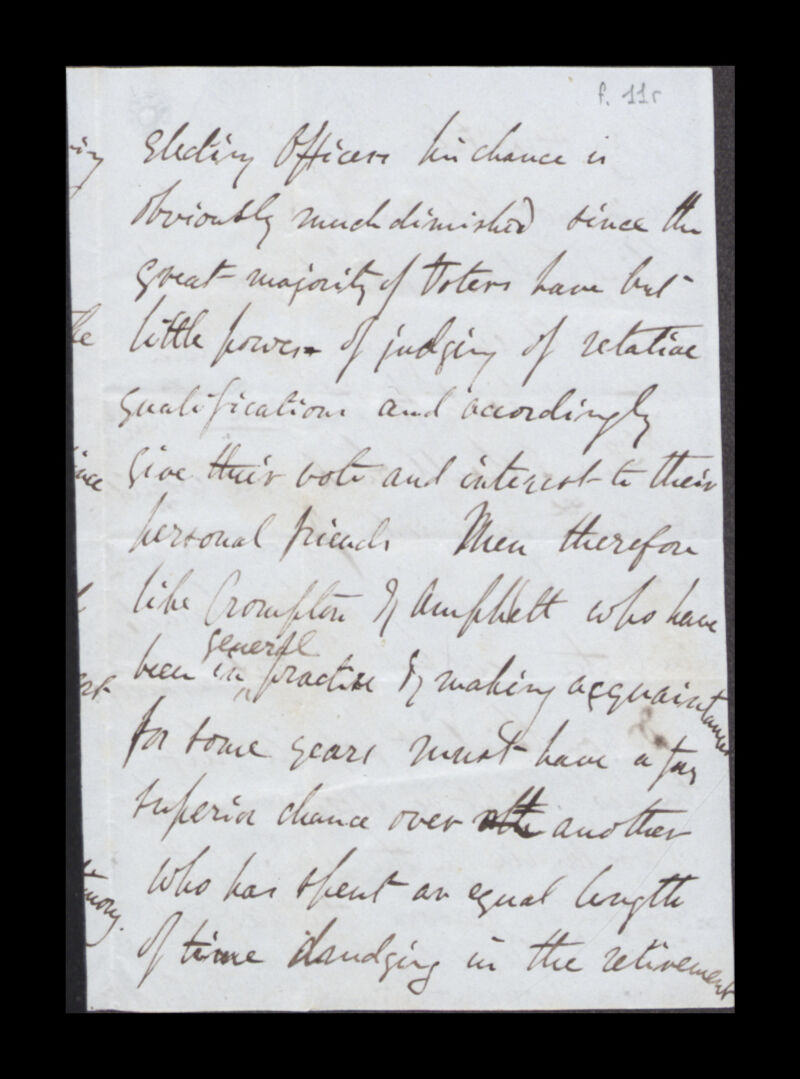 f. 11r
electing Officers his chance is
obviously much diminished since the
great majority of Voters have but
little power of judging of relative
qualifications and accordingly
give their vote and interest to their
personal friends Men therefore
like Crompton & Amphlett who have
general
been in practise & making acquaintances
for some years must have a far
superior chance over another
who has spent an equal length
of time drudging in the retirement